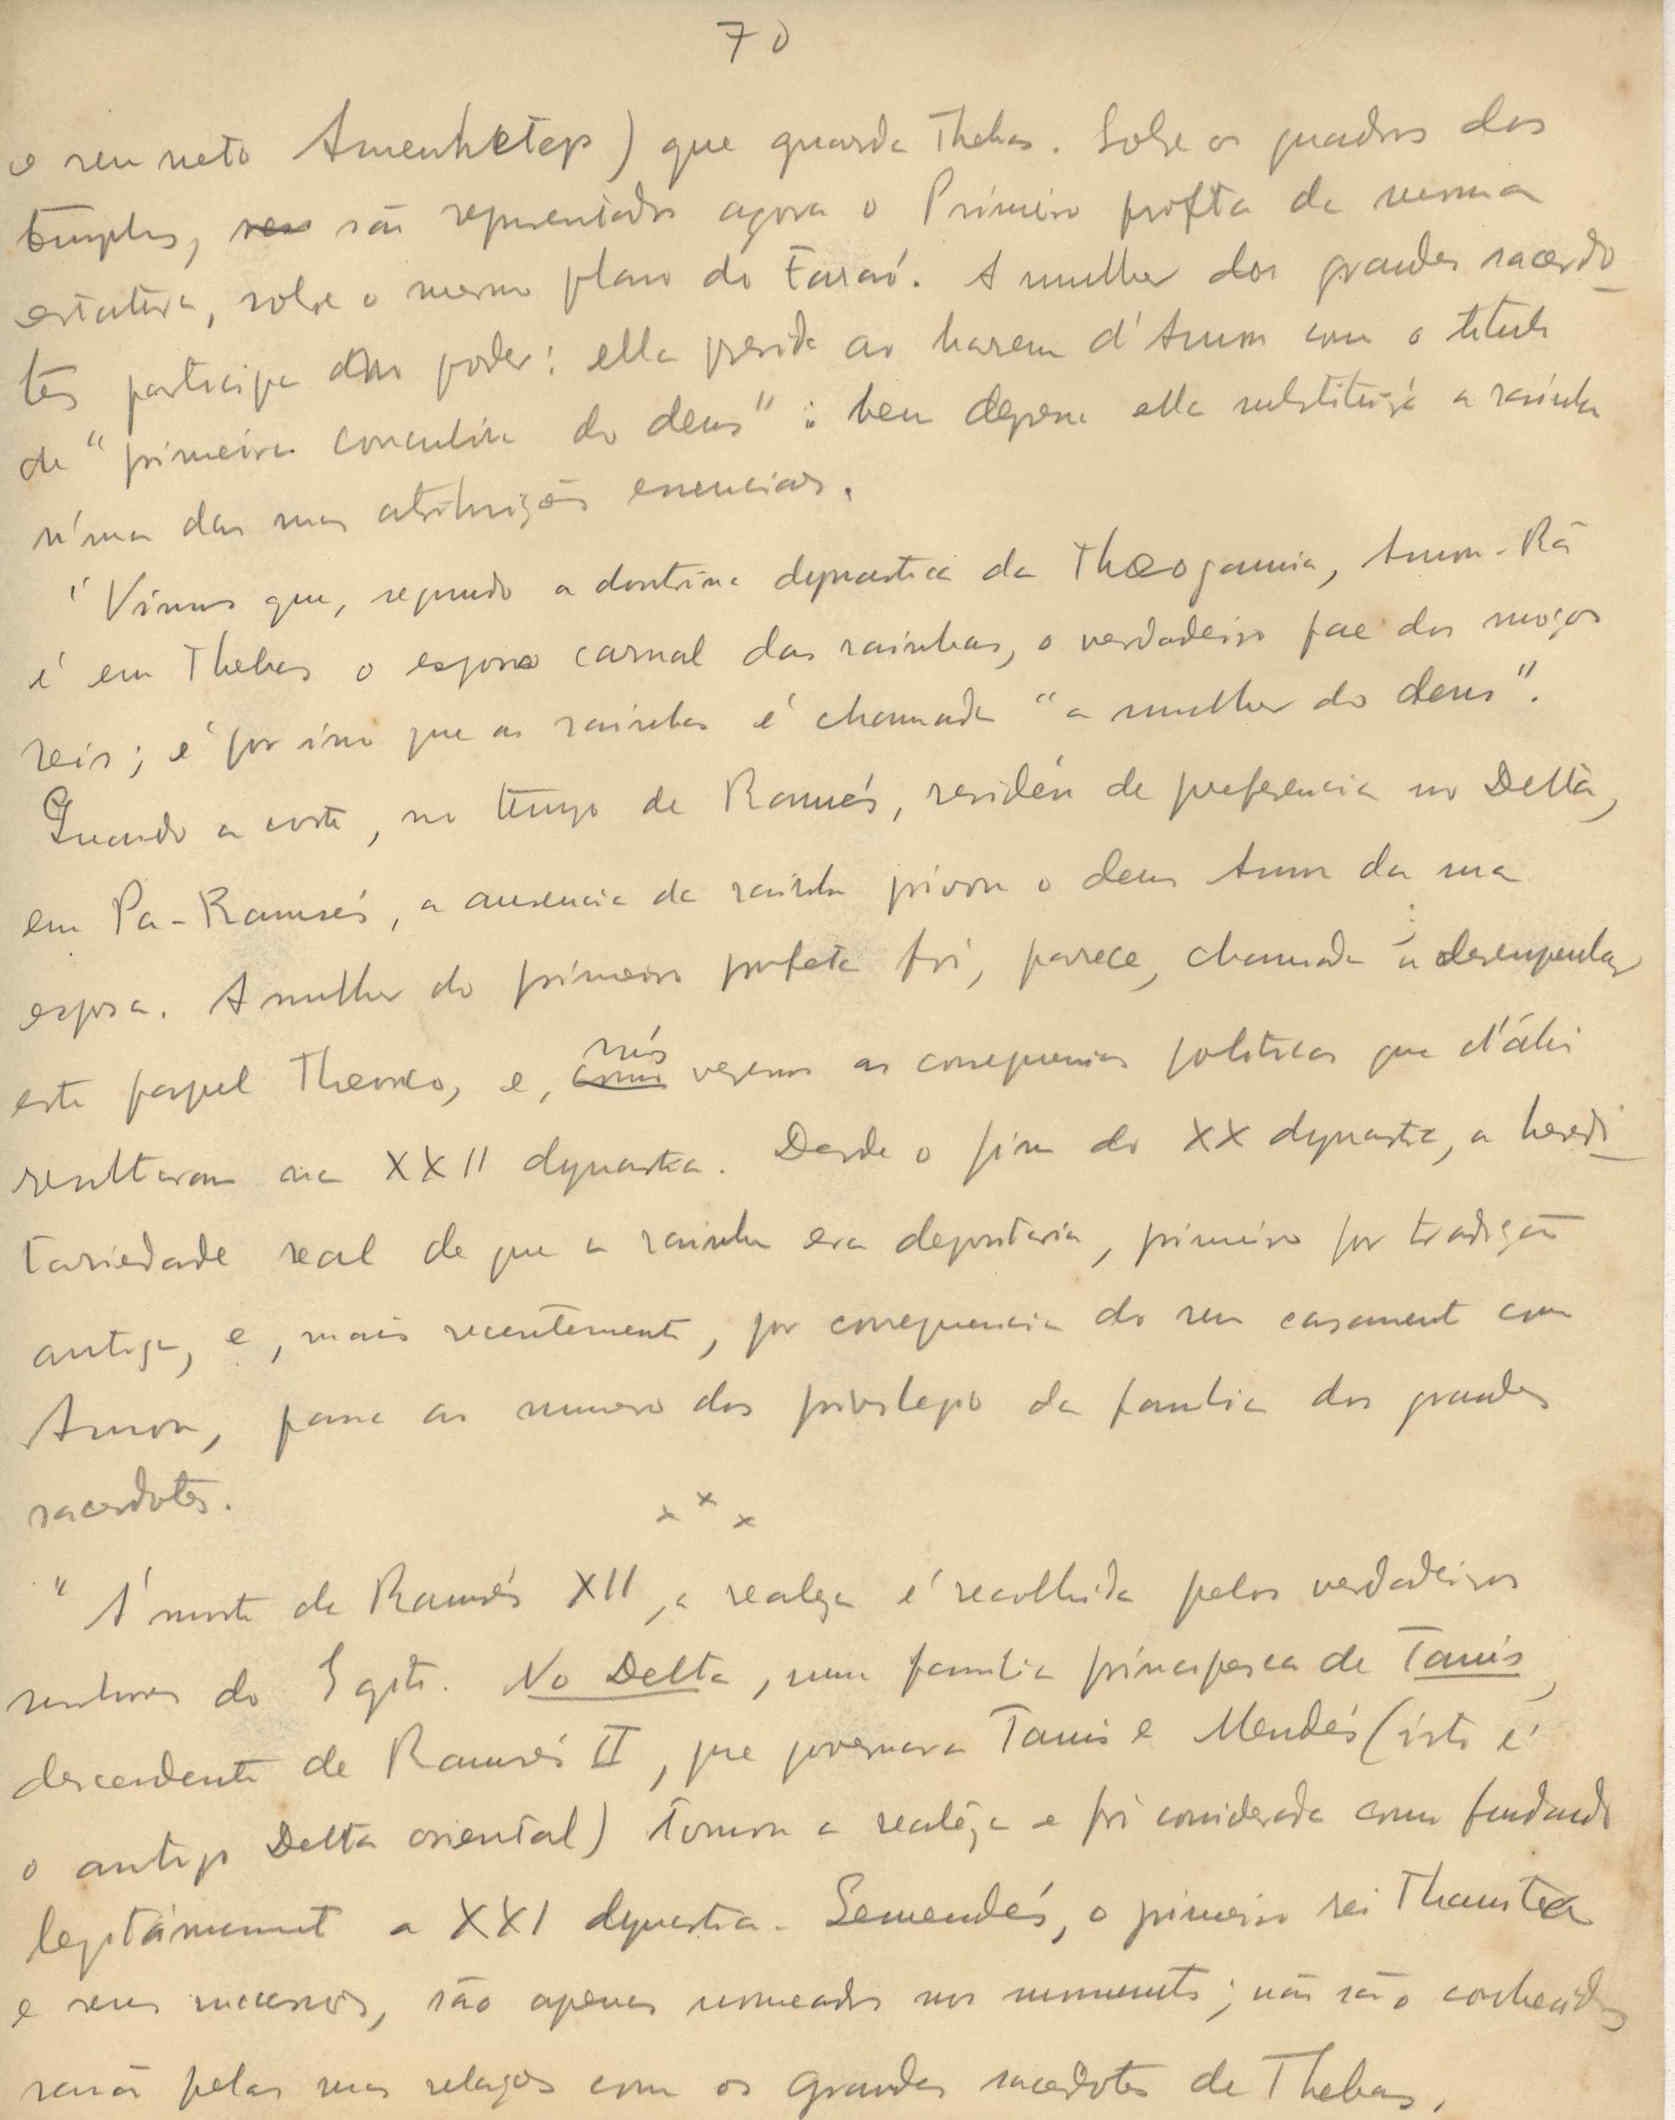 70
o seu neto Amenhetep) que guarda Thebas. Sobre os quadros dos
templos, são representados agora o Primeiro profta da mesma
estatura, sobre o mesmo plano do Faraó. A mulher dos grandes sacerdo_
tes participa do poder: ella preside ao harem d'Amon com o titulo
de "primeira concubina do deus" : bem depressa ella substituirá a rainha
n'uma das suas atribuições essenciaes.
"Vimos que, segundo a doutrina dynastica da Theogamia, Amon-Râ
é em Thebas o esposo carnal das rainhas, o verdadeiro pae dos moços
reis; é por isso que as rainhas é chamada "a mulher do deus".
Quando a corte, no tempo de Ramsés, residia de preferencia no Delta,
em Pa-Ramsés, a ausencia da rainha privou o deus Amon da sua
esposa. A mulher do primeiro profeta foi, parece, chamada a desempenhar
este papel e, nós veremos as consequencias politicas que d'áhi
resultaram na XXII dynastia. Desde o fim da XX dynastia, a heredi_
tariedade real de que a rainha era depositaria, primeiro por tradição
antiga, e, mais recentemente, por consequencia do seu casamento com
Amon, passa ao numero dos privilegio da familia dos grandes
sacerdotes.
x x x
"Á morte de Ramsés XII, a realeza é recolhida pelos verdadeiros
senhores do Egito. No Delta, uma familia principesca de Tanis,
descendente de Ramsés II, que governava Tanis e Mendés (isto é
o antigo Delta oriental) tomou a realeza e foi considerada como fundando
legitimamente a XXI dynastia. Semendés, o primeiro rei
e seus sucessores, são apenas nomeados nos monumentos; não são conhecidos
senão pelas suas relações com os grandes sacerdotes de Thebas.